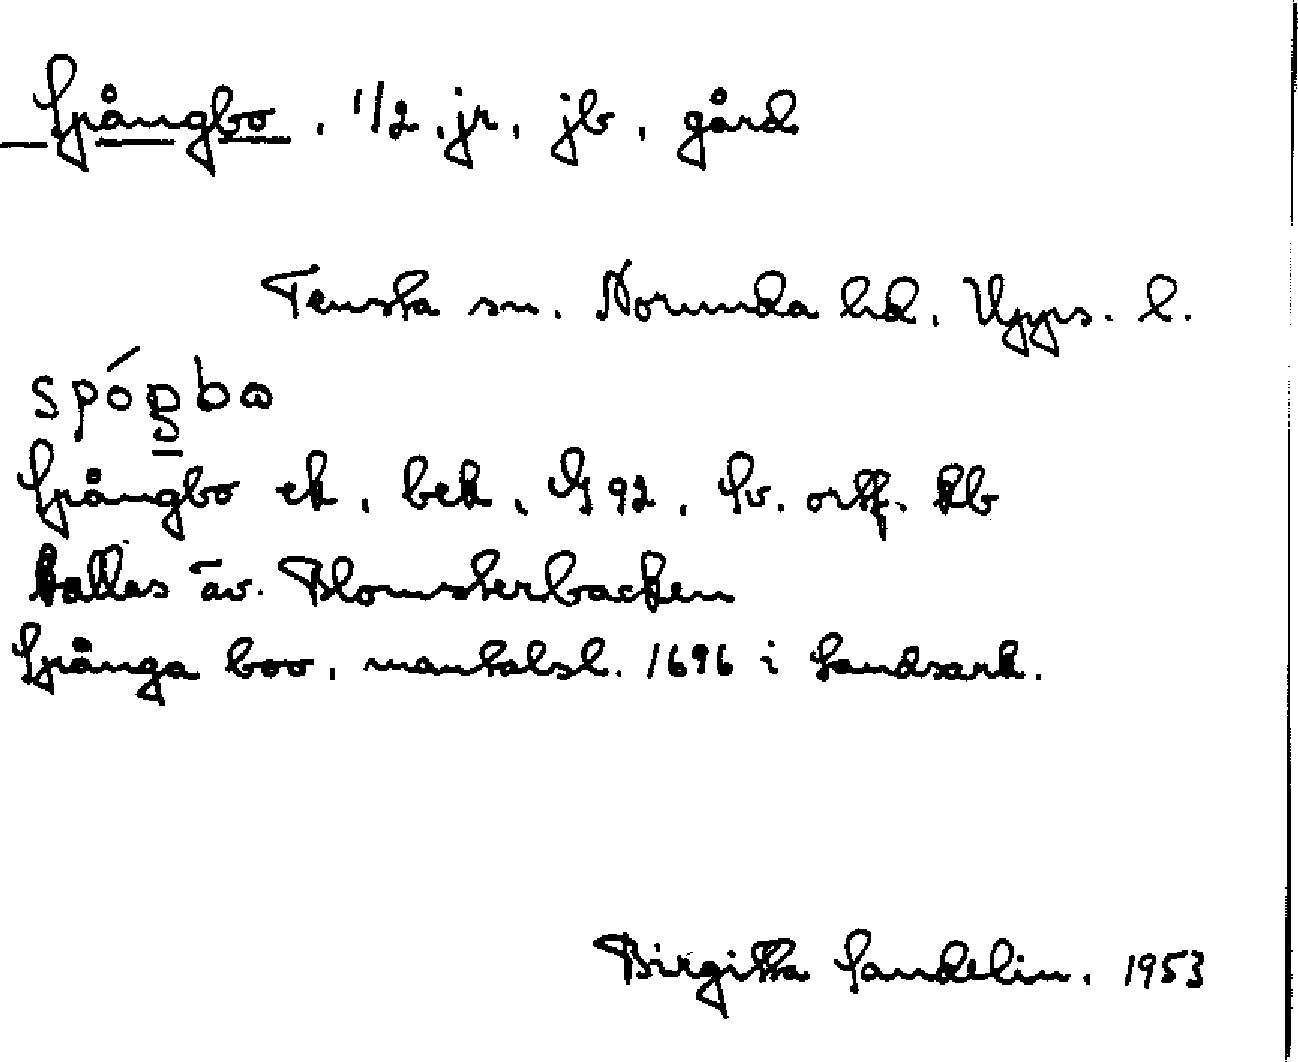 Spångbo, 1/2, jr, jb, gård
Tensta sn. Norunda hd. Upps. l.
spóŋbo
Spångbo ek, bek, G 92, Sv. ortf. Rb
kallas äv. Blomsterbacken
Spånga boo, mantalsl. 1696 i Landsark.
Birgitta Sandelin. 1953